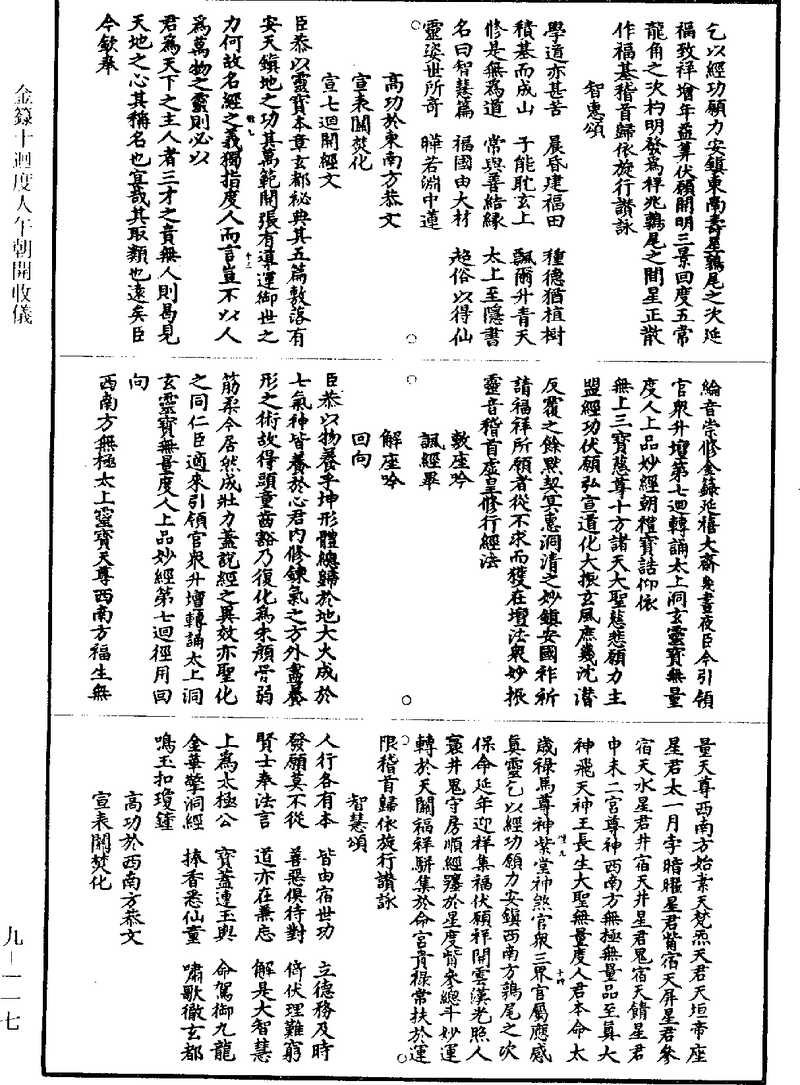 乞以經功願力安鎮東南壽星鶉尾之次延
福致祥增年益算伏願開明三景回度五常
龍角之次杓明發爲祥兆鶉尾之間星正散
作福基稽首歸依旋行讚詠
智惠頌
學道亦甚苦 晨昏建福田 種德猶植樹
積基而成山 子能耽玄上 飄爾升青天
修是無爲道 常與善結緣 太上至隱書
名曰智慧篇 福國由大材 超俗以得仙
靈姿世所奇 曄若淵中蓮
高功於東南方恭文
宣表關焚化
宣七迴開經文
臣恭以靈寶本章玄都秘典其五篇敷落有
安天鎮地之功其萬範開張有導運御世之
力何故名經之義獨指度人而言豈不以人
爲萬物之靈則必以
君爲天下之主人者三才之貴無人則曷見
天地之心其稱名也宜哉其取類也遠矣臣
今欽奉
金籙十迴度人午朝開收儀
綸音崇修金籙延禧大齋幾晝夜臣今引領
官衆升壇第七迴轉誦太上洞玄靈寶無量
度人上品妙經朝禮寶誥仰依
無上三寶慈尊十方諸天大聖慈悲願力主
盟經功伏願弘宣道化大振玄風庶幾沈潛
反覆之餘黙契冥惠洞清之妙鎮安國祚祈
請福祥所願者從不求而獲在壇法衆妙振
靈音稽首虛皇修行經法
敷座吟
諷經畢
解座吟
回向
臣恭以物養乎坤形體總歸於地大火成於
七氣神皆養於心君内修鍊氣之方外盡養
形之術故得頭童齒豁乃復化爲朱顔骨弱
筋柔今居然成壯力蓋説經之異效亦聖化
之同仁臣適來引領官衆升壇轉誦太上洞
玄靈寶無量度人上品妙經第七迴徑用回
向
西南方無極太上靈寶天尊西南方福生無
量天尊西南方始素天梵炁天君天垣帝座
星君太一月孛暗曜星君觜宿天屏星君參
宿天水星君井宿天井星君鬼宿天鐀星君
申未二宮尊神西南方無極無量品至真大
神飛天神王長生大聖無量度人君本命太
歲祿馬尊神紫堂神煞官衆三界官屬應感
真靈乞以經功願力安鎮西南方鶉尾之次
保命延年迎祥集福伏願祥開雲漢老照人
寰井鬼守房順經躔於星度觜參總斗妙運
轉於天關福祥駢集於命宮貴祿常扶於運
限稽首歸依旋行讚詠
智慧頌
人行各有本 皆由宿世功 立德務及時
發願莫不從 善惡俱待對 倚伏理難窮
賢士奉法言 道亦在兼忘 解是大智慧
上爲太極公 寶蓋連玉輿 命駕御九龍
金華擎洞經 捧香悉仙童 嘯歌徹玄都
鳴玉扣瓊鐘
高功於西南方恭文
宣表關焚化
九-一一七